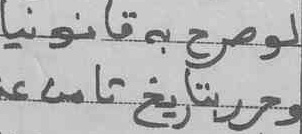 لوصرح به قانونيا
وحرر بتاريخ ثامن